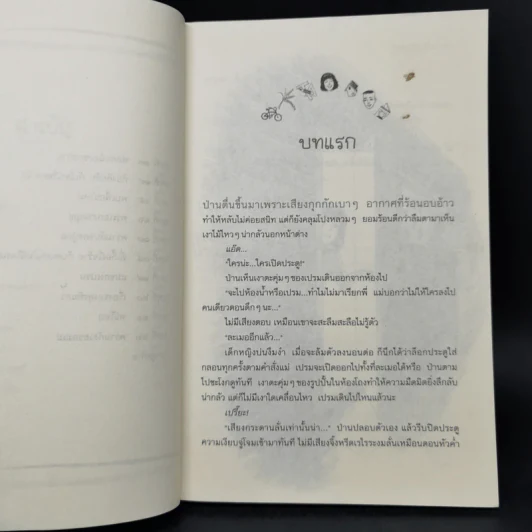 บทแรก
ป่านตื่นขึ้นมาเพราะเสียงกุกกักเบาๆ อากาศที่ร้อนอบอ้าว
ทำให้หลับไม่ค่อยสนิท แต่ก็ยังคลุมโปงหลวมๆ ยอมร้อนดีกว่าลืมตามาเห็น
เงาไม้ไหวๆ น่ากลัวนอกหน้าต่าง
แอ๊ด...
"ใครน่ะ...ใครเปิดประตู!"
ป่านเห็นเงาตะคุ่มๆ ของเปรมเดินออกจากห้องไป
"จะไปห้องน้ำหรือเปรม...ทำไมไม่มาเรียกพี่ แม่บอกว่าไม่ให้ใครลงไป
คนเดียวตอนดึกๆ นะ..."
ไม่มีเสียงตอบ เหมือนเขาจะสะลึมสะลือไม่รู้ตัว
"ละเมออีกแล้ว..."
เด็กหญิงบ่นงึมงำ เมื่อจะล้มตัวลงนอนต่อ ก็นึกได้ว่าล็อกประตูใส่
กลอนทุกครั้งตามคำสั่งแม่ เปรมจะเปิดออกไปทั้งที่ละเมอได้หรือ ป่านตาม
ไปชะโงกดูทันที เงาตะคุ่มๆ ของรูปปั้นในห้องโถงทำให้ความมืดมิดยิ่งลึกลับ
น่ากลัว แต่ก็ไม่มีเงาใดเคลื่อนไหว เปรมเดินไปไหนแล้วนะ
เปรี๊ยะ!
"เสียงกระดานลั่นเท่านั้นน่า..." ป่านปลอบตัวเอง แล้วรีบปิดประตู
ความเงียบจู่โจมเข้ามาทันที ไม่มีเสียงจิ้งหรีดเรไรระงมลั่นเหมือนตอนหัวค่ำ